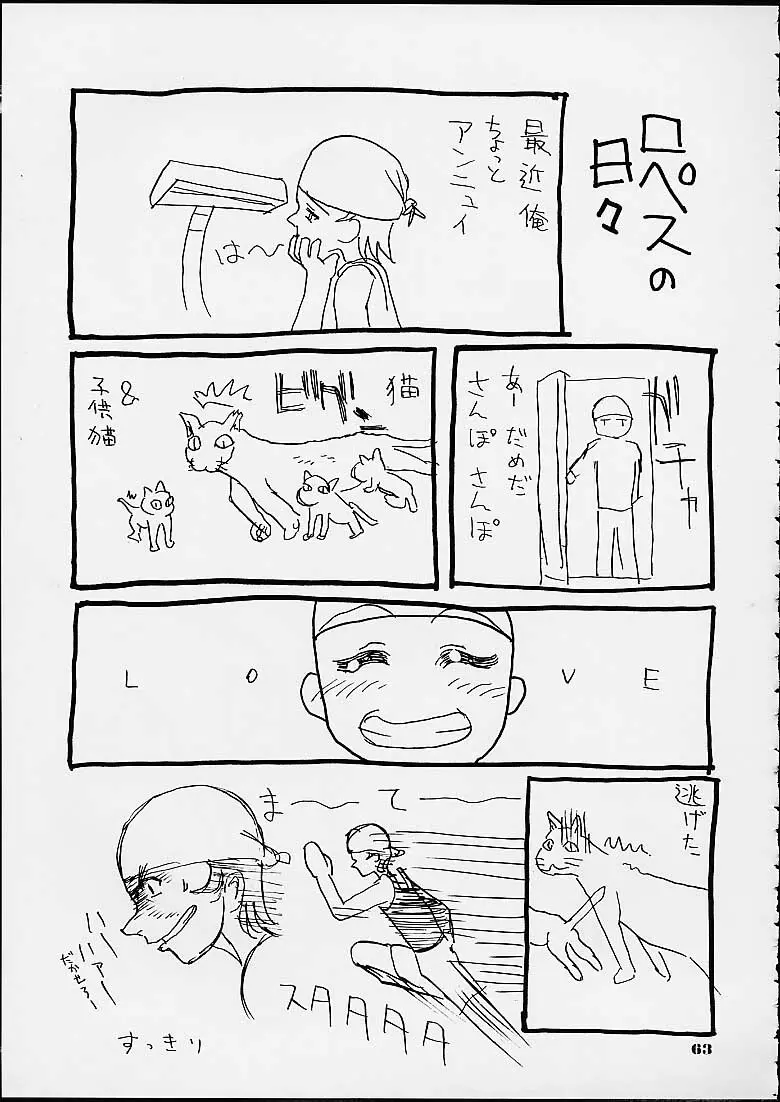 ロペスの
日々
最近俺
ちょっと
アンニュイ
は〜
ガチャ
あーだめだ
さんぽ さんぽ
猫
ビグ!
&
子供猫
L O V E
逃げた
ま ー て ー
スタタタタ
ハァ ハァー
だかせろー
すっきり
63